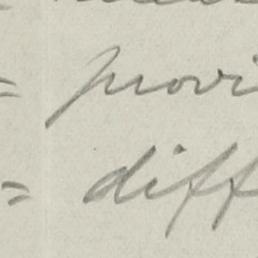 = provi
= diff